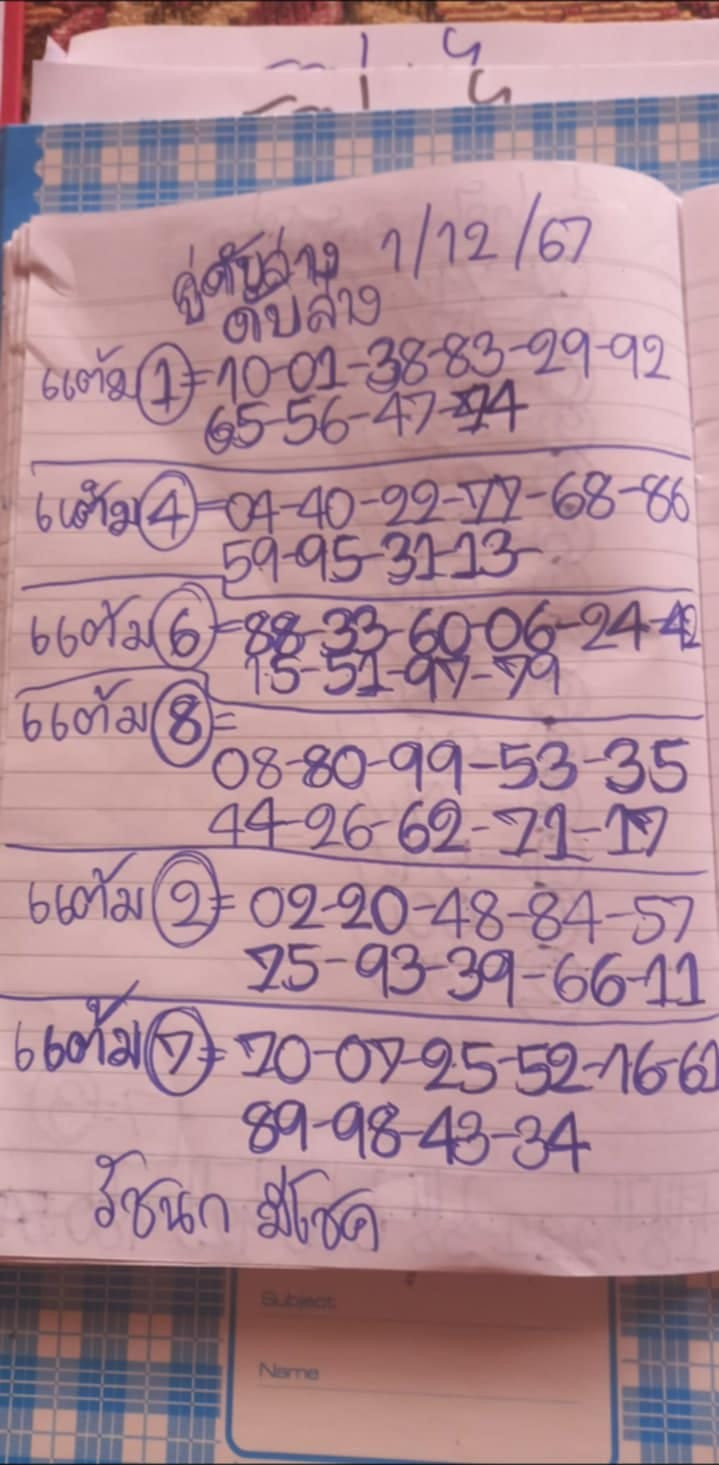 คู่ดับล่าง 1/12/67
ดับล่าง
แต้ม 1 = 10-01-38-83-29-92
65-56-47-74
แต้ม 4 = 04-40-22-77-68-86
59-95-31-13-
แต้ม 6 = 88-33-60-06-24-42
15-51-97-79
แต้ม 8 =
08-80-99-53-35
44-26-62-71-17
แต้ม 2 = 02-20-48-84-57
75-93-39-66-11
แต้ม 7 = 70-07-25-52-16-61
89-98-43-34
รัชนก มีโชค
Subject
Name